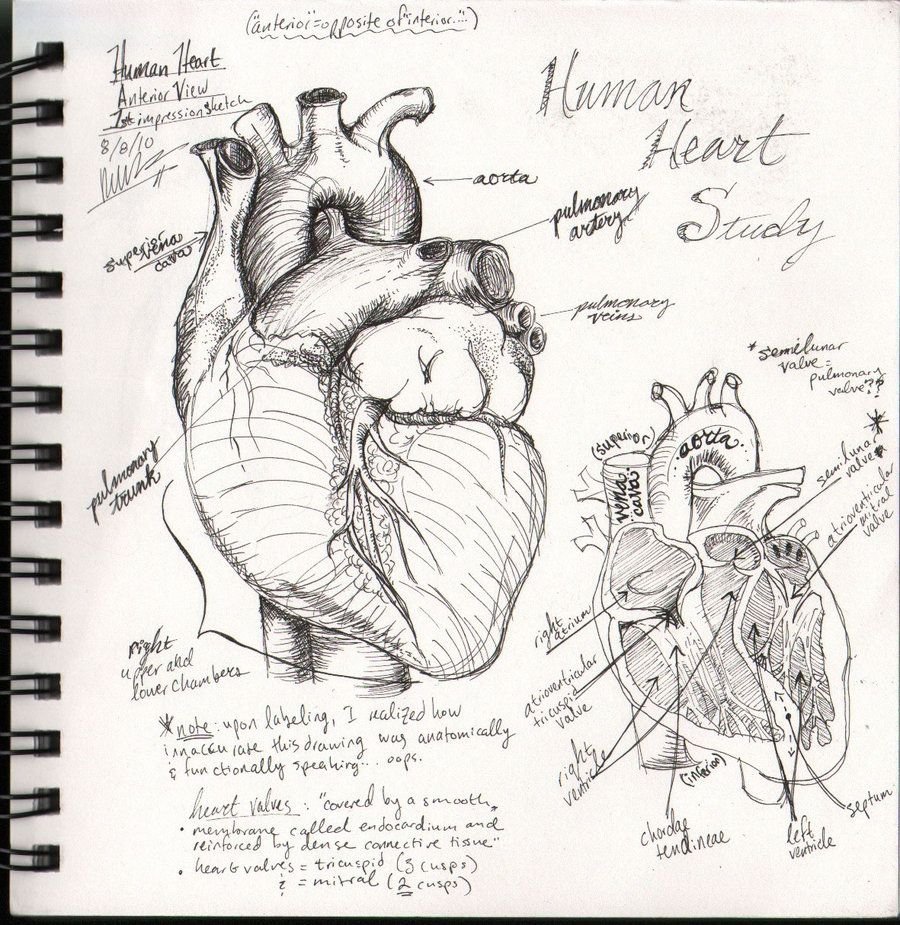 ("anterior"=opposite of "interior...")
Human Heart
Anterior View
1st impression sketch
8/8/10
Human
Heart
Study
aorta
pulmonary
artery
superior
vena
cava
pulmonary
veins
*semilunar
valve =
pulmonary
valve??
pulmonary
trunk
(superior)
vena
cava
aorta
semilunar
valve*
atrioventricular
mitral
valve
right
atrium
right
upper and
lower chambers
atrioventricular
tricuspid
valve
right
ventricle
(inferior)
chordae
tendineae
left
ventricle
septum
*note: upon labeling, I realized how
innaccurate this drawing was anatomically
& functionally speaking... oops.
heart valves: "covered by a smooth,
• membrane called endocardium and
reinforced by dense connective tissue"
• heart valves = tricuspid (3 cusps)
& = mitral (2 cusps)